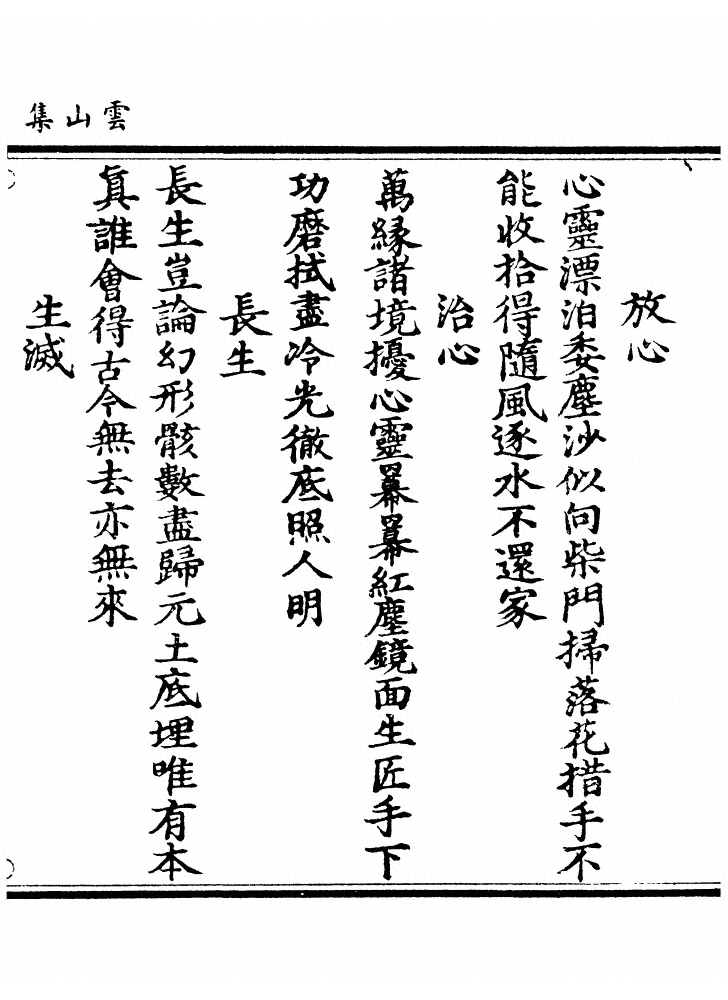 雲山集
放心
心靈漂泊委塵沙似向柴門掃落花措手不
能收拾得隨風逐水不還家
治心
萬緣諸境擾心靈冪冪紅塵鏡面生匠手下
功磨拭盡冷光徹底照人明
長生
長生豈論幻形骸數盡歸元土底埋唯有本
眞誰會得古今無去亦無來
生滅